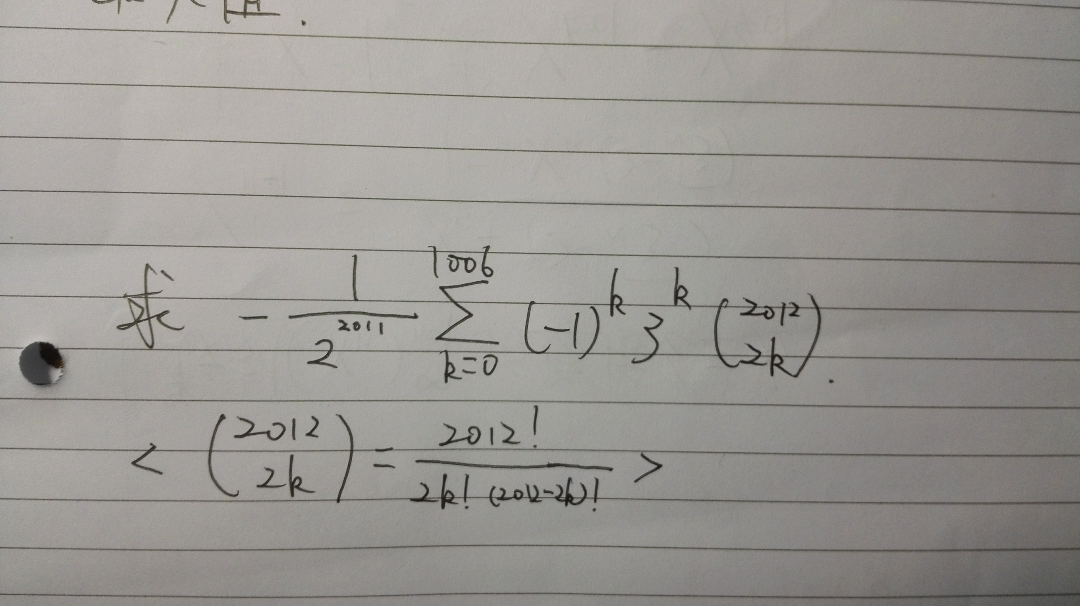 求 - \frac{1}{2^{2011}} \sum_{k=0}^{1006} (-1)^k 3^k \binom{2012}{2k}.
< \binom{2012}{2k} = \frac{2012!}{2k! (2012-2k)!} >